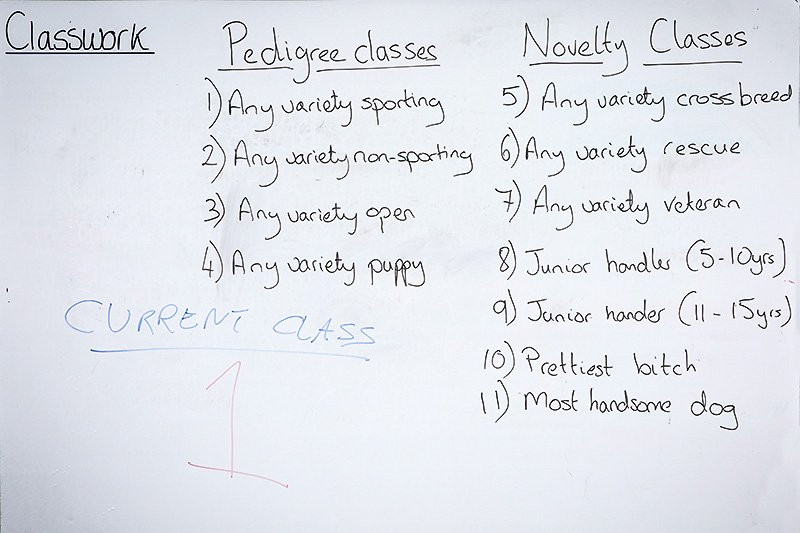 Classwork
Pedigree classes
1) Any variety sporting
2) Any variety non-sporting
3) Any variety open
4) Any variety puppy
Novelty Classes
5) Any variety crossbreed
6) Any variety rescue
7) Any variety veteran
8) Junior handler (5-10yrs)
9) Junior hander (11-15yrs)
10) Prettiest bitch
11) Most handsome dog
CURRENT CLASS
1